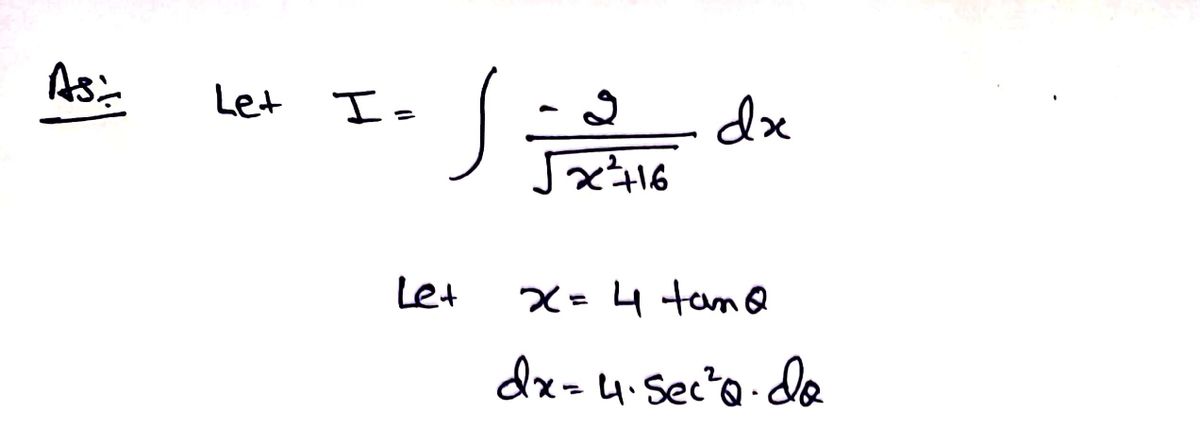 As:- Let I = ∫ -2/√(x²+16) dx
Let x = 4 tanθ
dx = 4·Sec²θ·dθ